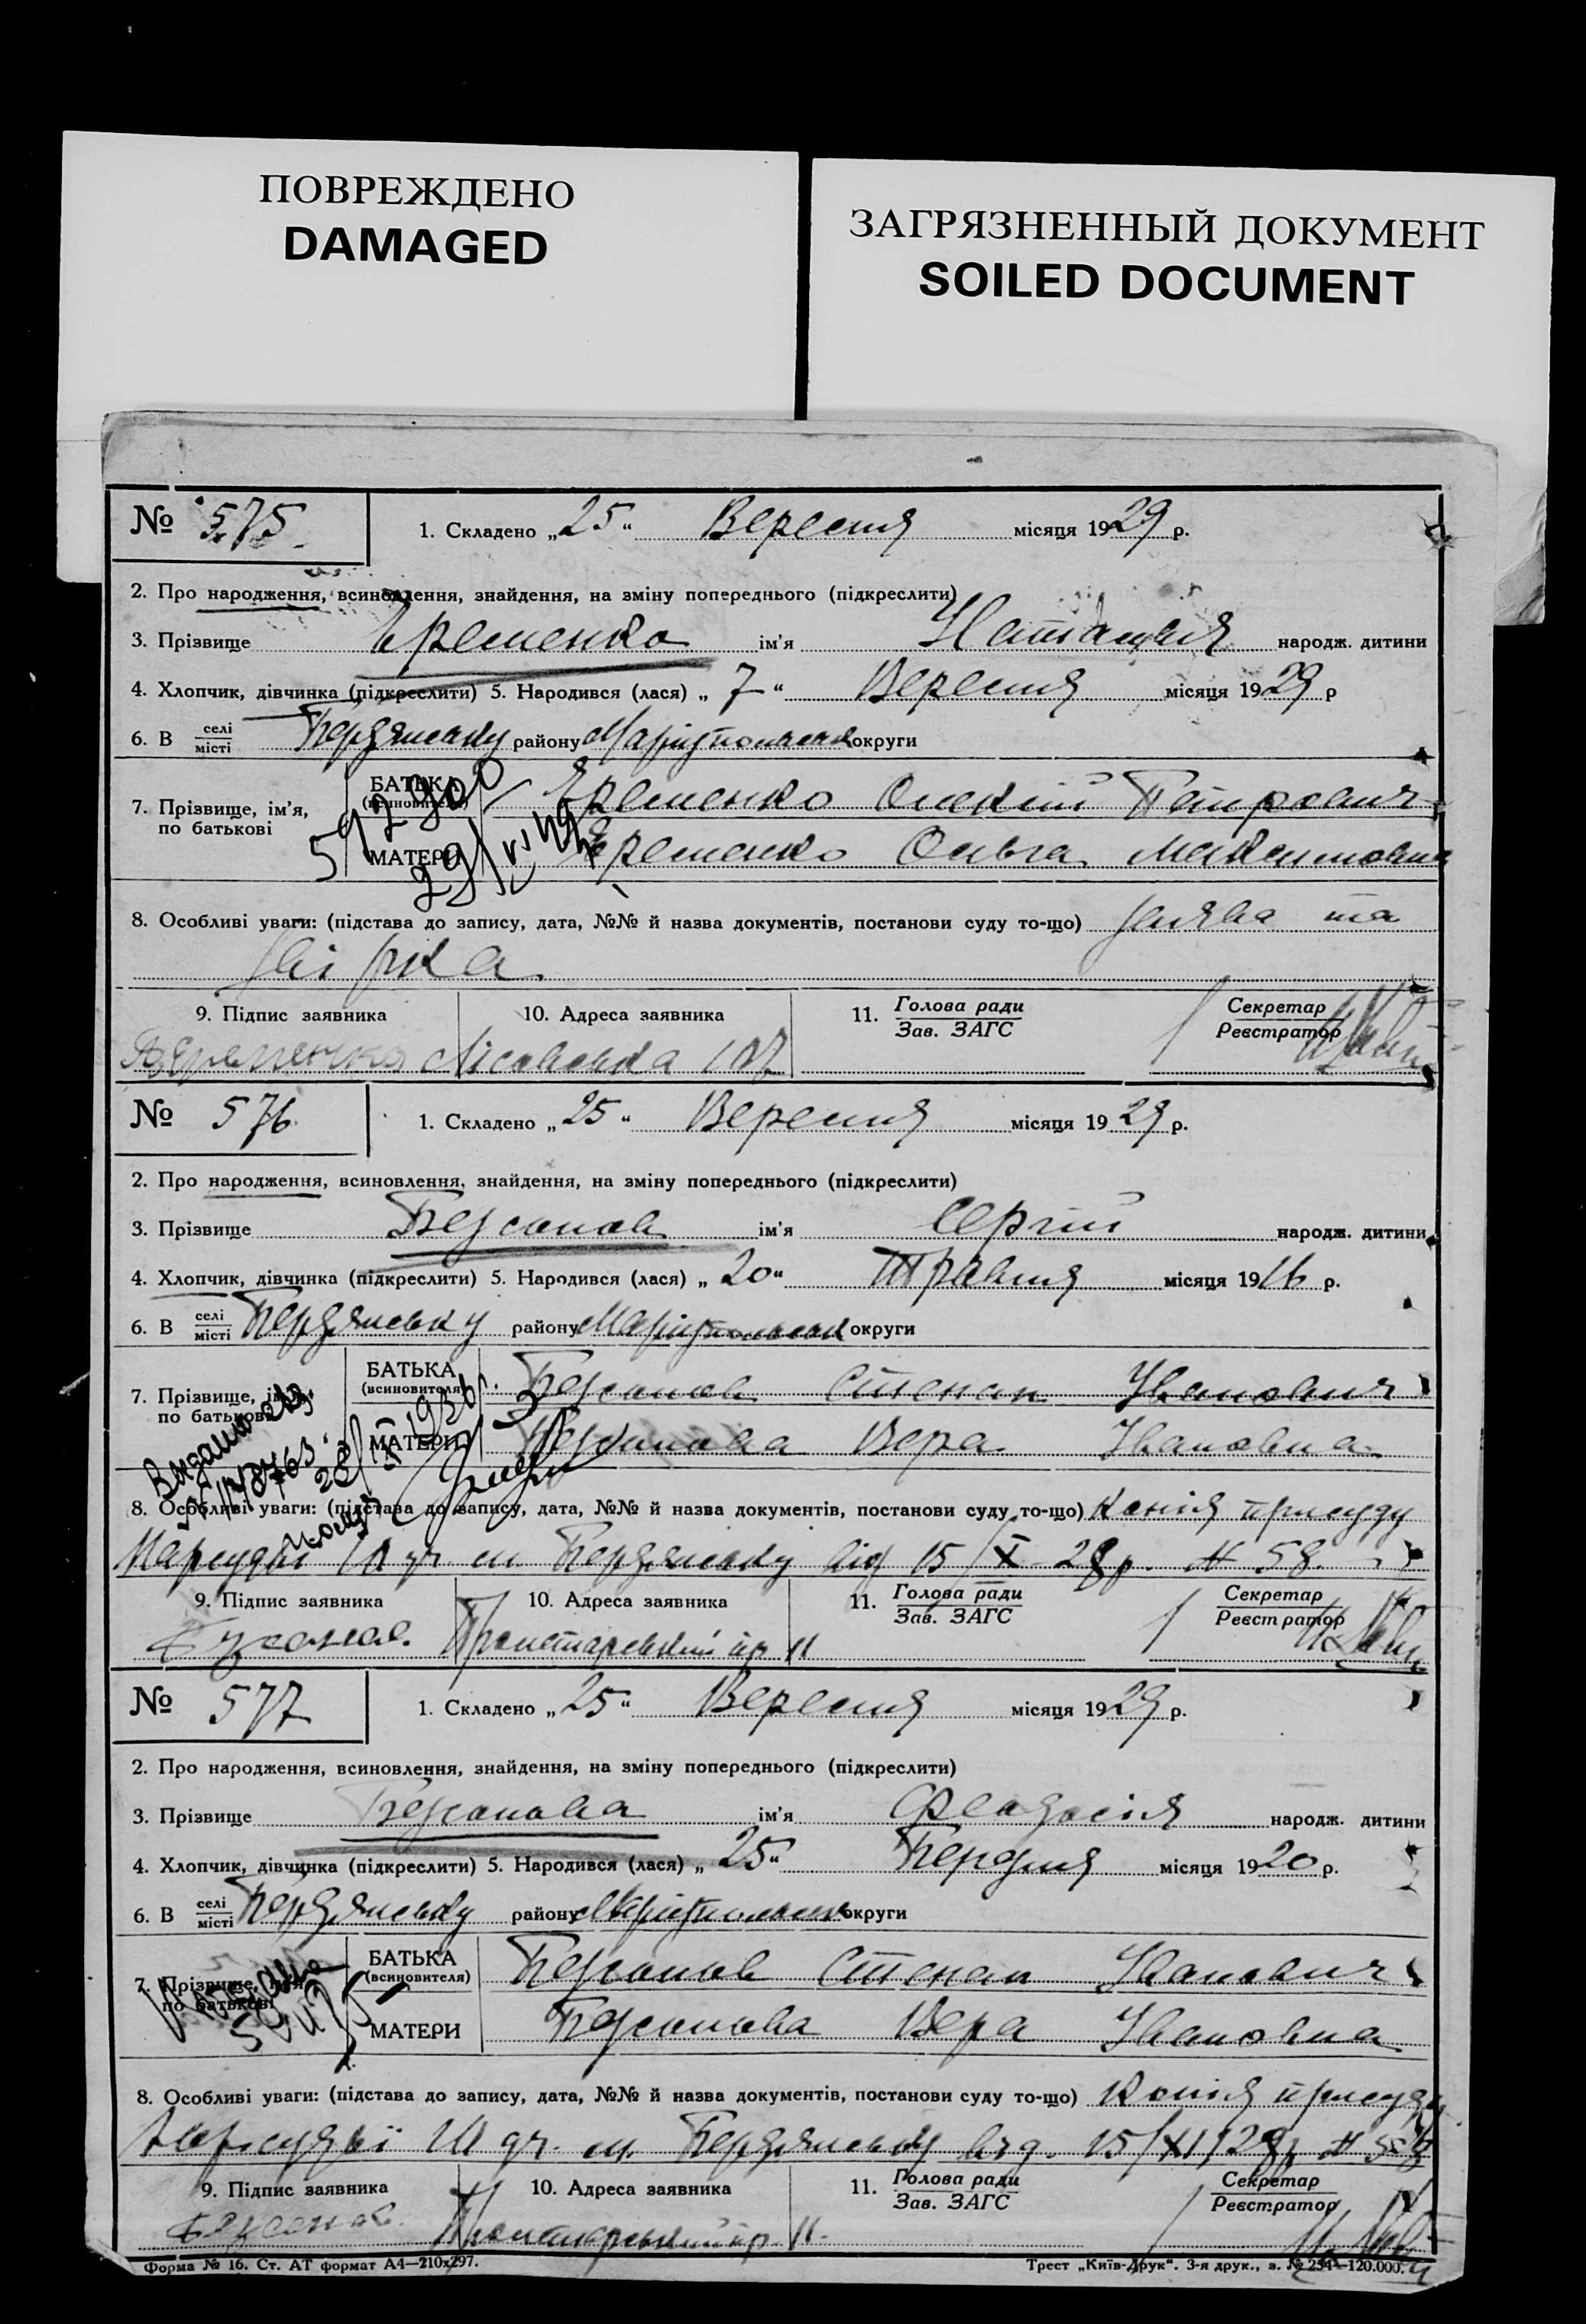 ПОВРЕЖДЕНО
DAMAGED
ЗАГРЯЗНЕННЫЙ ДОКУМЕНТ
SOILED DOCUMENT
№ 575
1. Складено „25“ Вересня місяця 1929 р.
2. Про народження, всиновлення, знайдення, на зміну попереднього (підкреслити)
3. Прізвище Єременко ім’я Наталія народж. дитини
4. Хлопчик, дівчинка (підкреслити) 5. Народився (лася) „7“ Вересня місяця 1929 р
6. В селі місті Бердянську району Маріупольськ округи
7. Прізвище, ім’я, по батькові
БАТЬКА (всиновителя) Єременко Олексій Петрович
МАТЕРИ Єременко Ольга Максимовна
8. Особливі уваги: (підстава до запису, дата, №№ й назва документів, постанови суду то-що) Заява та
9. Підпис заявника 10. Адреса заявника 11. Голова ради Зав. ЗАГС Секретар Реєстратор
Єременко Лісовська 107
№ 576
1. Складено „25“ Вересня місяця 1929 р.
2. Про народження, всиновлення, знайдення, на зміну попереднього (підкреслити)
3. Прізвище Безсонов ім’я Сергій народж. дитини
4. Хлопчик, дівчинка (підкреслити) 5. Народився (лася) „20“ Травня місяця 1916 р.
6. В селі місті Бердянську району Маріупольськ округи
7. Прізвище, ім’я по батькові
БАТЬКА (всиновителя) Безсонов Степан Іванович
МАТЕРИ Безсонова Вера Івановна
8. Особливі уваги: (підстава до запису, дата, №№ й назва документів, постанови суду то-що) Копія присуду
Нарсудді дч. м. Бердянську від 15/X-28р. № 58.
9. Підпис заявника 10. Адреса заявника 11. Голова ради Зав. ЗАГС Секретар Реєстратор
Пролетарський пр 11
№ 577
1. Складено „25“ Вересня місяця 1929 р.
2. Про народження, всиновлення, знайдення, на зміну попереднього (підкреслити)
3. Прізвище Безсонова ім’я Феодосія народж. дитини
4. Хлопчик, дівчинка (підкреслити) 5. Народився (лася) „25“ місяця 1920 р.
6. В селі місті Бердянську району Маріупольськ округи
7. Прізвище, ім’я по батькові
БАТЬКА (всиновителя) Безсонов Степан Іванович
МАТЕРИ Безсонова Вера Івановна
8. Особливі уваги: (підстава до запису, дата, №№ й назва документів, постанови суду то-що) Копія присуду
Нарсудді дч. м. Бердянську від 15/XI/28р №
9. Підпис заявника 10. Адреса заявника 11. Голова ради Зав. ЗАГС Секретар Реєстратор
Пролетарський пр 11.
Форма № 16. Ст. АТ формат А4—210х297.
Трест „Київ-Друк“. 3-я друк., з. № 254—120.000.